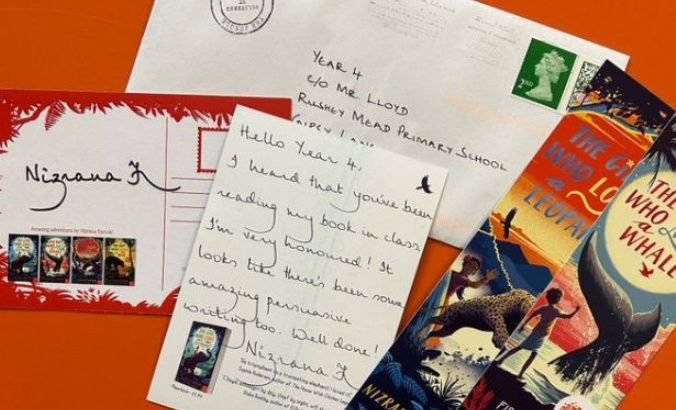 YEAR 4
C/O MR. LLOYD
RUSHEY MEAD PRIMARY SCHOOL
2ND
Nizrana F
Amazing adventures by Nizrana Farook!
Hello Year 4,
I heard that you've been
reading my book in class
I'm very honoured! It
looks like there's been some
amazing persuasive
writing too. Well done!
Nizrana F
THE
WHO LO
a
LEOPA
NIZRA
THE
WHO L
a
WHALE